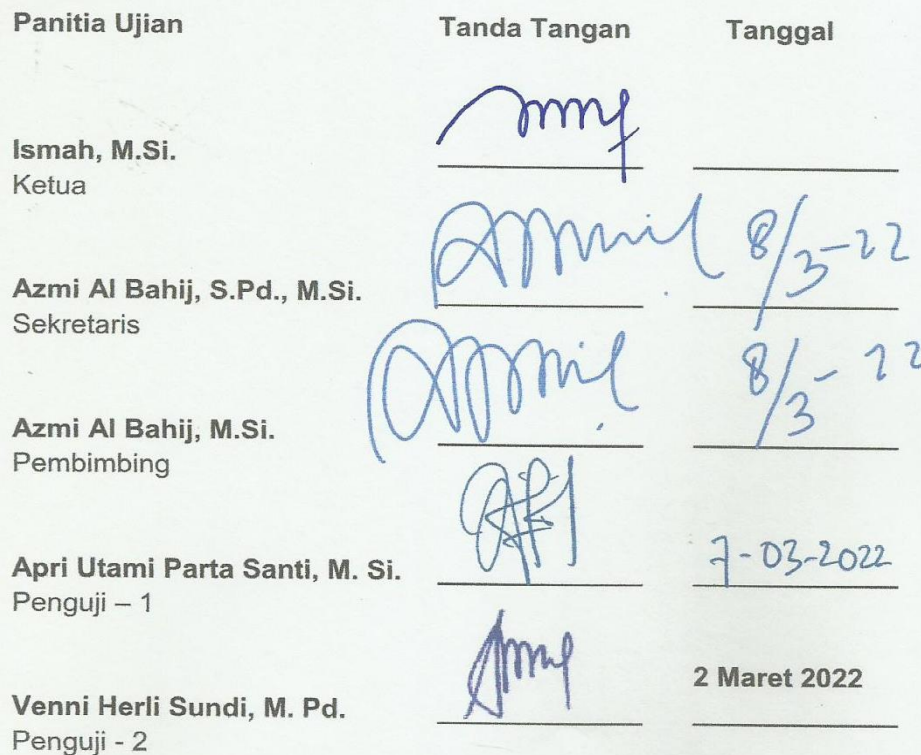 Panitia Ujian Tanda Tangan Tanggal
Ismah, M.Si.
Ketua
8/3-22
Azmi Al Bahij, S.Pd., M.Si.
Sekretaris
8/3-22
Azmi Al Bahij, M.Si.
Pembimbing
7-03-2022
Apri Utami Parta Santi, M. Si.
Penguji – 1
2 Maret 2022
Venni Herli Sundi, M. Pd.
Penguji - 2